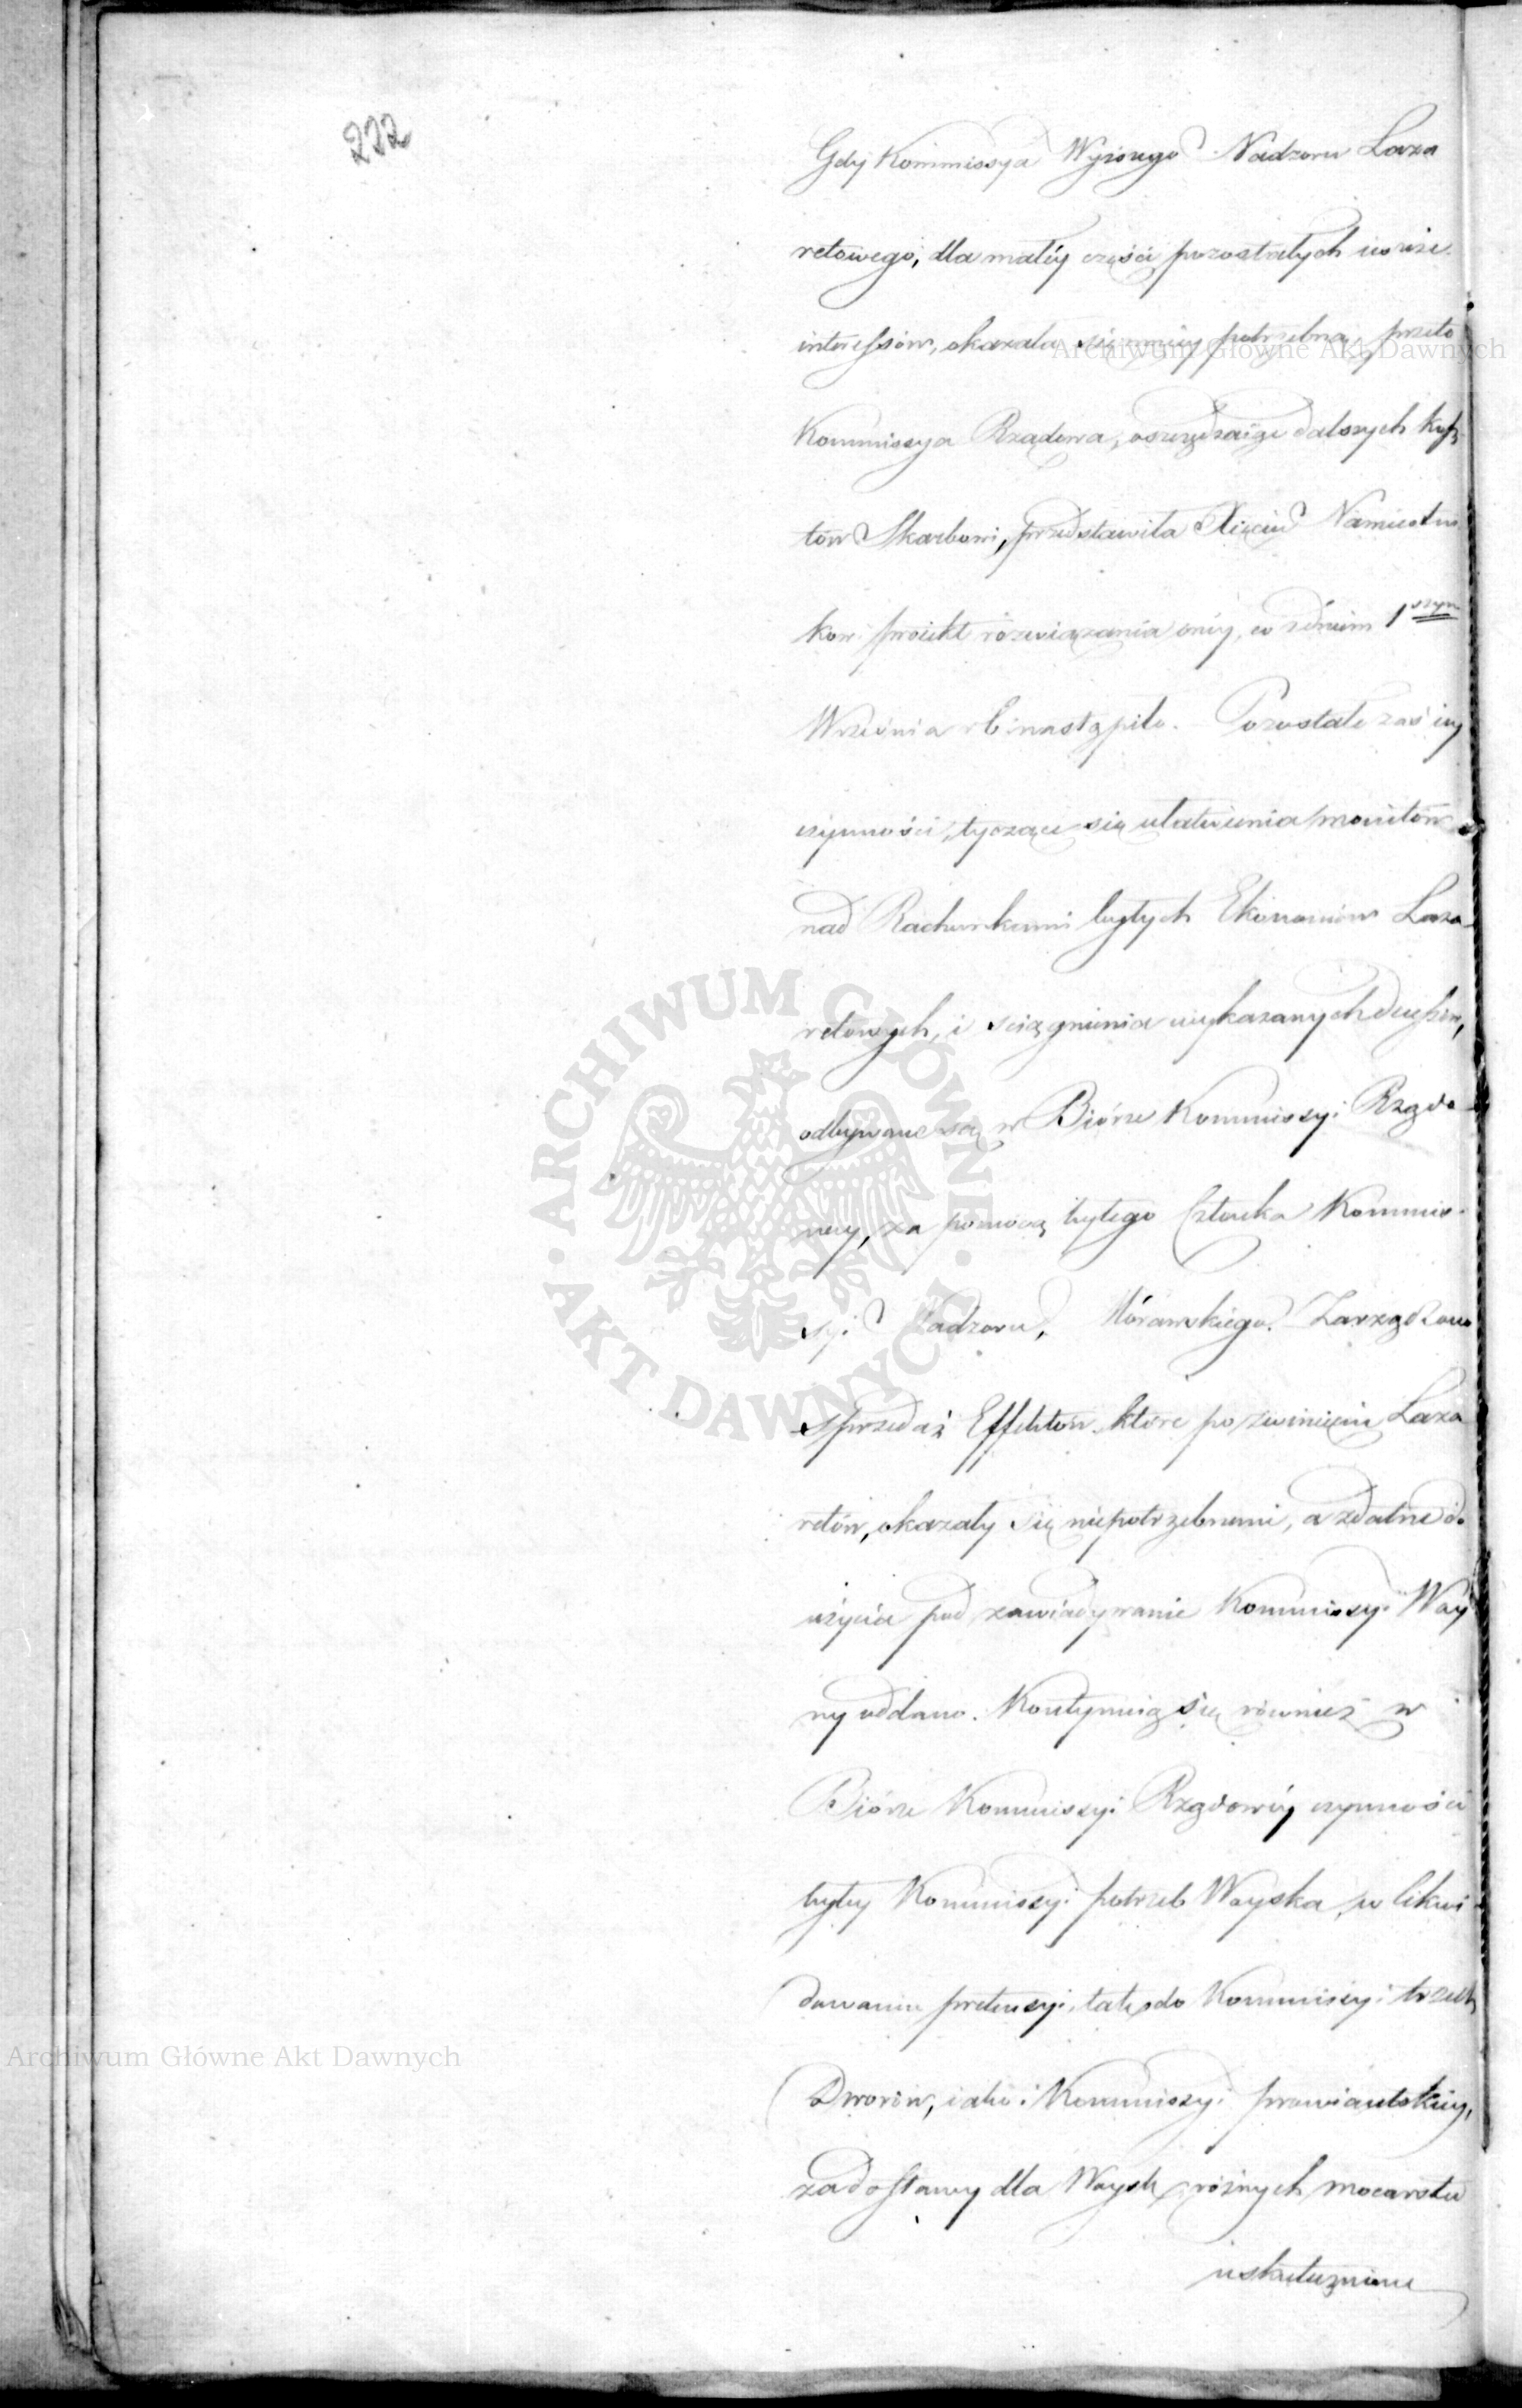 222
Gdy Kommissya Wyższego Nadzoru Laza
retowego, dla małéy części pozostałych ieszcze
interessów, okazała się mniey potrzebną, przeto
Kommissya Rządowa, oszczędzaiąc dalszych kosz
tów Skarbowi, przedstawiła Xięciu Namiestni
kowi proiekt rozwiązania onéy, co z dniem 1szym
Września r b nastąpiło. Pozostałe zaś iey
czynności, tyczące się ułatwienia monitów
nad Rachunkami byłych Ekonomów Laza
retowych, i ściągnienia wykazanych długów,
odbywane są w Biórze Kommissyi Rządo
wey, za pomocą byłego Członka Kommis-
syi Nadzoru, Mórawskiego. Zarządzono
sprzedaż Effektów, które po zwinięciu Laza
retów, okazały się niepotrzebnemi, a zdatne do
użycia pod zawiadywanie Kommissyi Woy
ny oddano. Kontynuią się również w
Biórze Kommissyi Rządowéy czynności
byłey Kommissyi potrzeb Woyska, w likwi
dowaniu pretensyi, tak do Kommissyi trzech
Dworów, iako i Kommissyi prowiantskiey,
za dostawy dla Woysk różnych mocarstw
uskutecznione
Archiwum Główne Akt Dawnych
Archiwum Główne Akt Dawnych
ARCHIWUM GŁÓWNE
AKT DAWNYCH